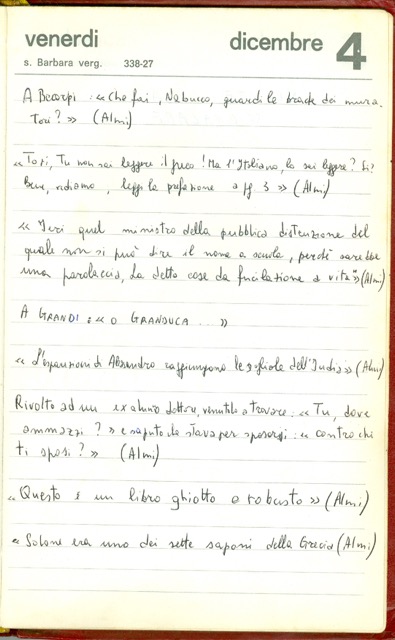 venerdi dicembre 4
s. Barbara verg. 338-27
A Becorpi : «Che fai, Nabucco, guardi le brache dei mura_
Tori?» (Almi)
«Toti, Tu non sai leggere il greco! Ma l'Italiano, lo sai leggere? Sì?
Bene, vediamo, leggi la prefazione a pg 3» (Almi)
«Ieri quel ministro della pubblica distruzione del
quale non si può dire il nome a scuola, perché sarebbe
una parolaccia, ha detto cose da fucilazione a vita"» (Almi)
A GRANDI : « O GRANDUCA ... »
«L'espansioni di Alessandro raggiungono le soglie dell'India» (Almi)
Rivolto ad un ex alunno dottore, venutolo a trovare: «Tu, dove
ammazzi?» e saputo che stava per sposarsi: «contro chi
ti sposi?» (Almi)
«Questo è un libro ghiotto e robusto» (Almi)
«Solone era uno dei sette saponi della Grecia (Almi)